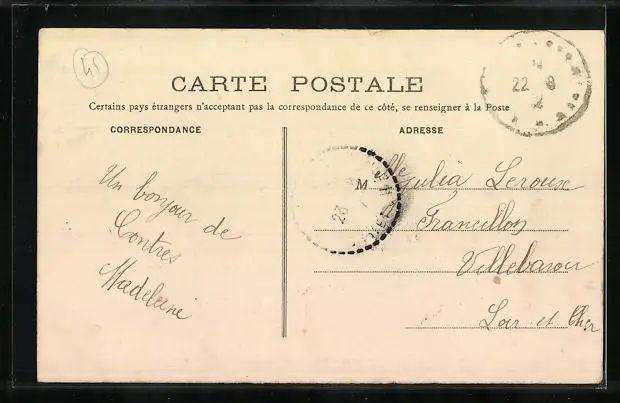 45
CARTE POSTALE
Certains pays étrangers n'acceptant pas la correspondance de ce côté, se renseigner à la Poste
CORRESPONDANCE
ADRESSE
22 9
2
23
Un bonjour de
Contres
Madeleine
Mlle Julia Leroux
Francillon
Villebarou
Loir et Cher